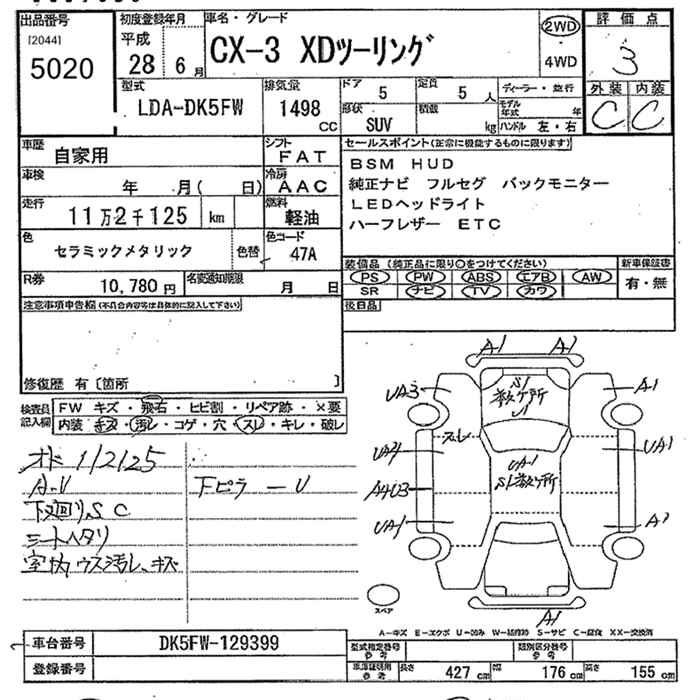 出品番号 初度登録年月 車名・グレード 2WD 評価点
[2044] 平成 CX-3 XDツーリング 4WD 3
5020 28年 6月
型式 排気量 ドア 5 定員 5人 ディーラー・並行 外装 内装
LDA-DK5FW 1498cc 形状 SUV 積載 kg モデル年式 年 C C
ハンドル 左・右
車歴 自家用 シフト FAT セールスポイント(正常に機能するものに限ります)
車検 年 月( 日) 冷房 AAC BSM HUD
純正ナビ フルセグ バックモニター
走行 11万2千125 km 燃料 軽油 LEDヘッドライト
ハーフレザー ETC
色 セラミックメタリック 色替 色コード 47A
装備品(純正品に限り○をつけてください) 新車保証書
R券 10,780円 名変通知期限 月 日 PS PW ABS エアB AW 有・無
SR ナビ TV カワ
注意事項申告欄(不具合内容等は具体的に記入して下さい) 後日品
修復歴 有〔箇所 〕
検査員記入欄 FW キズ・飛石・ヒビ割・リペア跡・×要
内装 キズ・汚レ・コゲ・穴・スレ・キレ・破レ
オド 112125
A・U 下ピラーU
下廻りS C
シートヘタリ
室内ウス汚レ、キズ
A1 A1
UA3 S1 数ヶ所 U1 A1
スレ
UA4 UA1 UA1
S1数ヶ所
A4U3
UA1 A2
スペア A1
A-キズ E-エクボ U-凹み W-補修跡 S-サビ C-腐食 XX-交換済
車台番号 DK5FW-129399 型式指定番号 参考 類別区分番号 参考
登録番号 車庫証明用 参考 長さ 427cm 幅 176cm 高さ 155cm